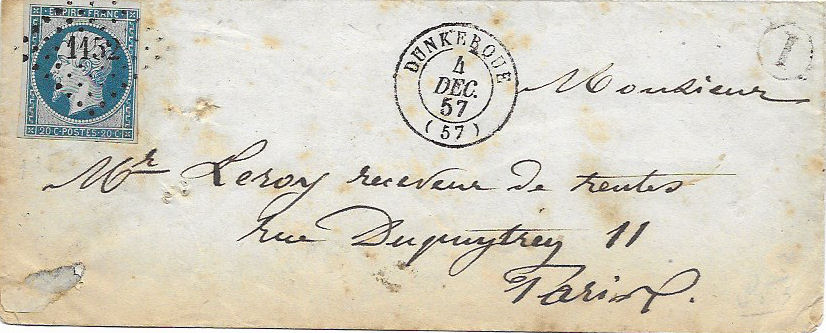 EMPIRE FRANC
1152
20·C·POSTES·20·C·
DUNKERQUE
4
DEC.
57
(57)
1
Monsieur
Mr Leroy receveur de rentes
rue Dupuytrey 11
Paris.